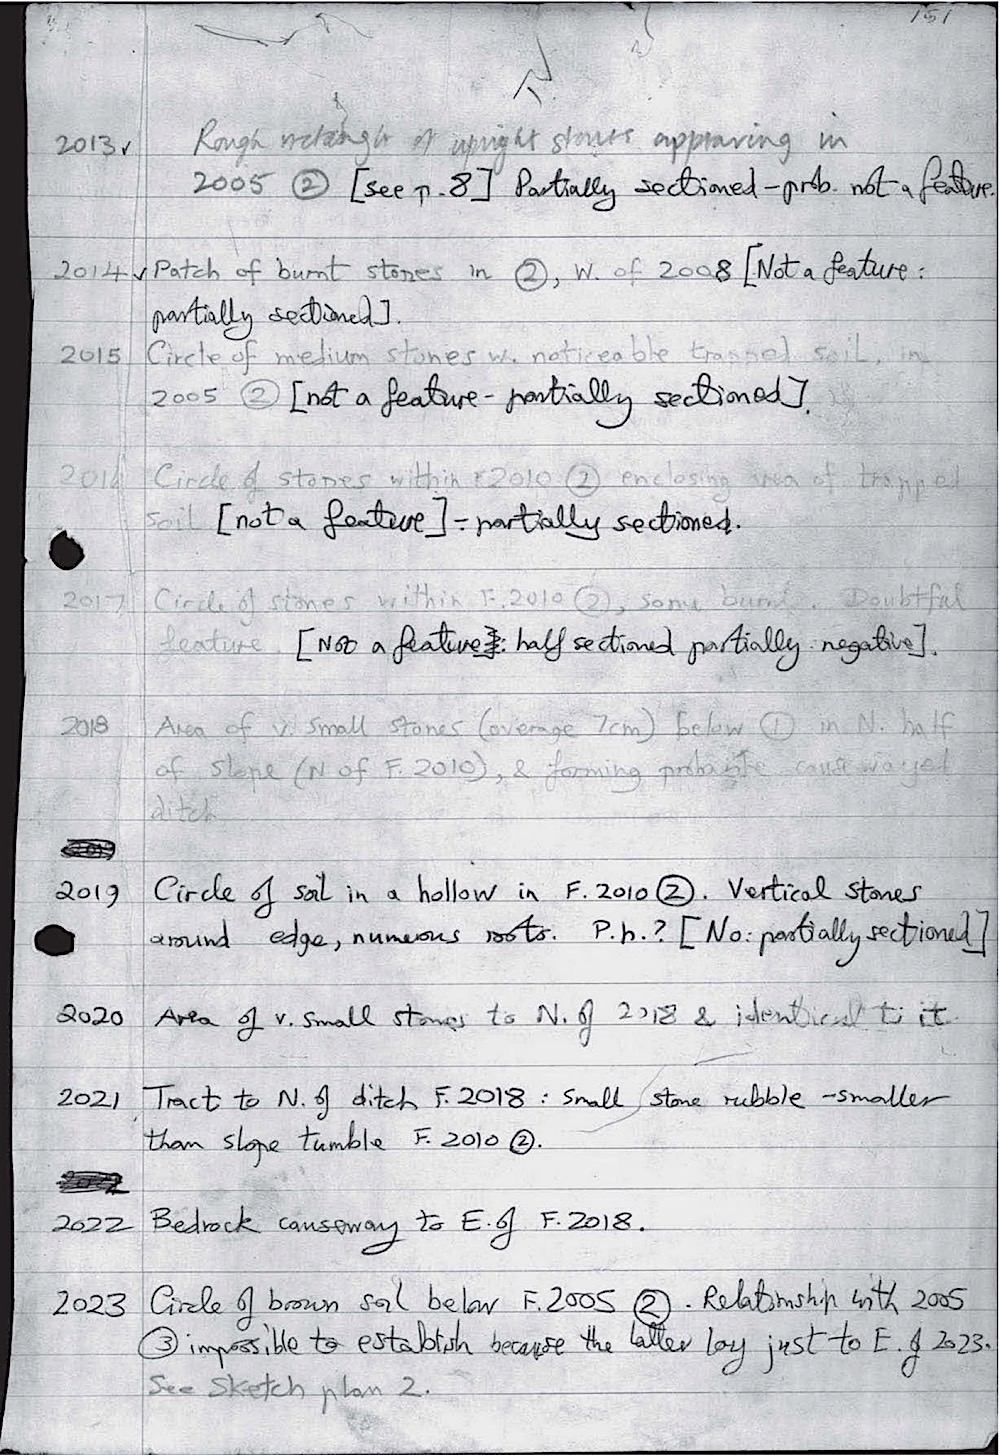 151
2013✓ Rough rectangle of upright stones appearing in
2005 ② [see p. 8] Partially sectioned – prob. not a feature.
2014✓ Patch of burnt stones in ②, W. of 2008 [Not a feature:
partially sectioned].
2015 Circle of medium stones w. noticeable trapped soil, in
2005 ② [not a feature – partially sectioned].
2016 Circle of stones within F2010 ② enclosing area of trapped
soil [not a feature] – partially sectioned.
2017 Circle of stones within F.2010 ②, some burnt. Doubtful
feature. [Not a feature]: half sectioned partially negative].
2018 Area of v. small stones (average 7cm) below ① in N. half
of slope (N of F. 2010), & forming probable causewayed
ditch
2019 Circle of soil in a hollow in F. 2010 ②. Vertical stones
around edge, numerous roots. P.h.? [No: partially sectioned]
2020 Area of v. small stones to N. of 2018 & identical to it.
2021 Tract to N. of ditch F. 2018 : small stone rubble – smaller
than slope tumble F. 2010 ②.
2022 Bedrock causeway to E. of F. 2018.
2023 Circle of brown soil below F. 2005 ②. Relationship with 2005
③ impossible to establish because the latter lay just to E. of 2023.
See Sketch plan 2.